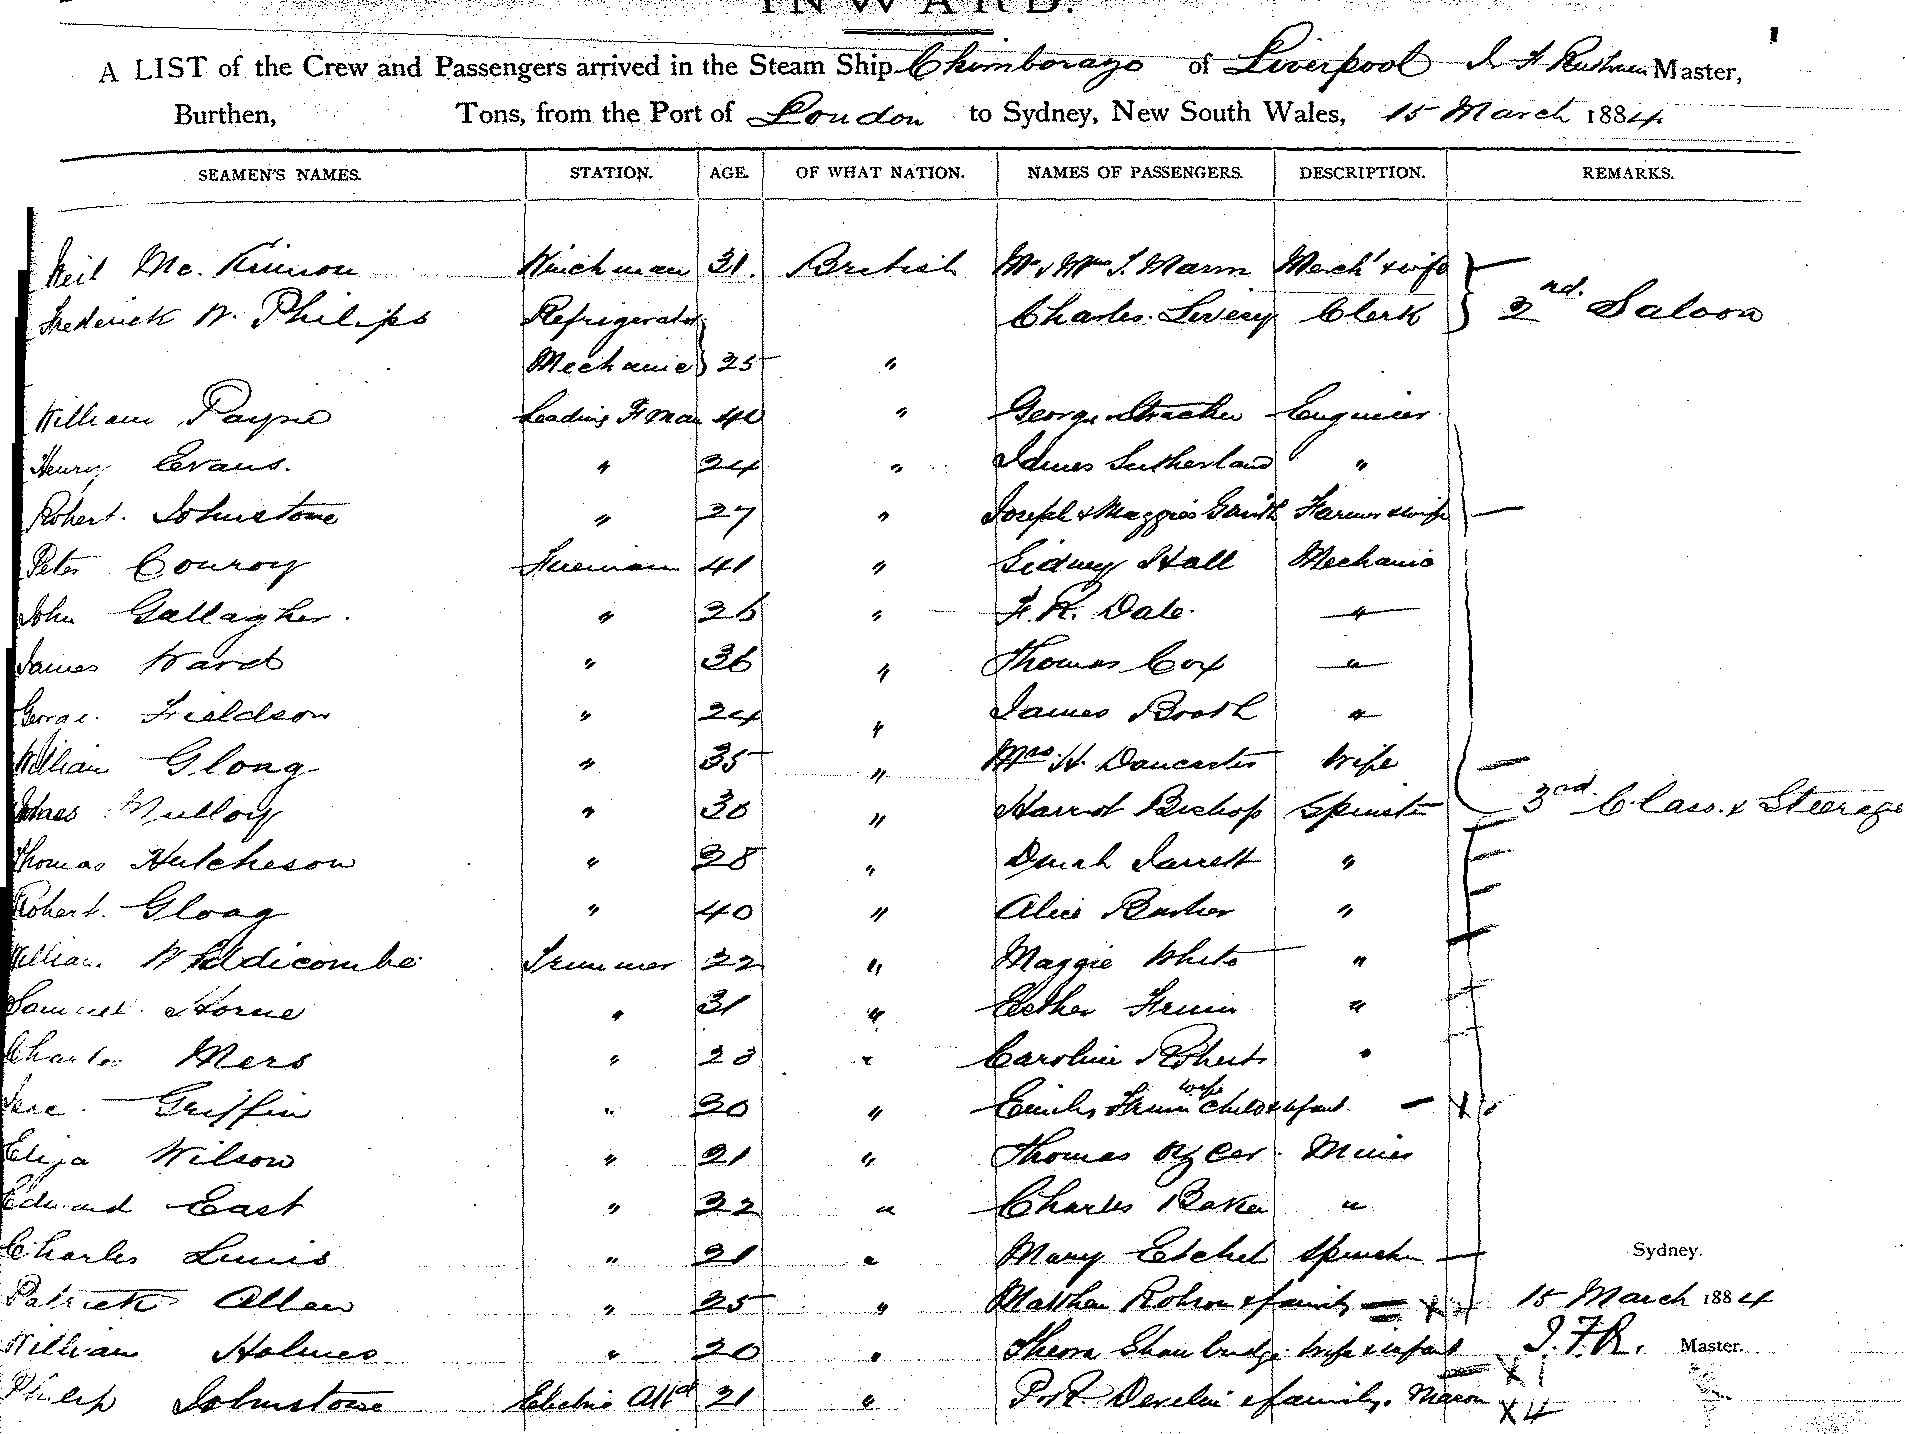 INWARD.
A LIST of the Crew and Passengers arrived in the Steam Ship Chimborazo of Liverpool J. F. Ruthven Master,
Burthen, Tons, from the Port of London to Sydney, New South Wales, 15 March 1884
SEAMEN'S NAMES. STATION. AGE. OF WHAT NATION. NAMES OF PASSENGERS. DESCRIPTION. REMARKS.
Neil Mc. Kinnon Winchman 31. British Mr & Mrs S. Marin Merch't & wife
Frederick W. Philips Refrigerator Charles Livery Clerk 2nd. Saloon
Mechanic 25 "
William Payne Leading F'man 40 " George Engineer
Henry Evans. " 24 " James Sutherland "
Robert Johnstone " 27 " Joseph & Maggie Farmer & wife
Peter Conroy Fireman 41 " Sidney Hall Mechanic
John Gallagher. " 26 " F. R. Dale "
James Ward " 36 " Thomas Cox "
George Fieldson " 24 " James Booth "
William Glong " 35 " Mrs H. Dancaster Wife
Mulloy " 30 " Harriot Bishop Spinster 3rd. Class. & Steerage
Thomas Hutcheson " 28 " Dinah Jarrett "
Robert Gloag " 40 " Alice Barker "
William Widdicombe Trimmer 22 " Maggie White "
Samuel Horne " 31 " Esther Firmin "
Charles Mers " 23 " Caroline Roberts "
Jere. Griffin " 20 " Emily wife child & infant
Eliza Wilson " 21 " Thomas Miner
Edward East " 22 " Charles Baker "
Charles Lewis " 21 " Mary Etchel Spinster Sydney.
Patrick Allen " 25 " Matthew Robson & family 15 March 1884
William Holmes " 20 " Wife & infant J. F. R. Master.
X 1
Philip Johnstone Electric Att'd 21 " & family. Mason
X 4